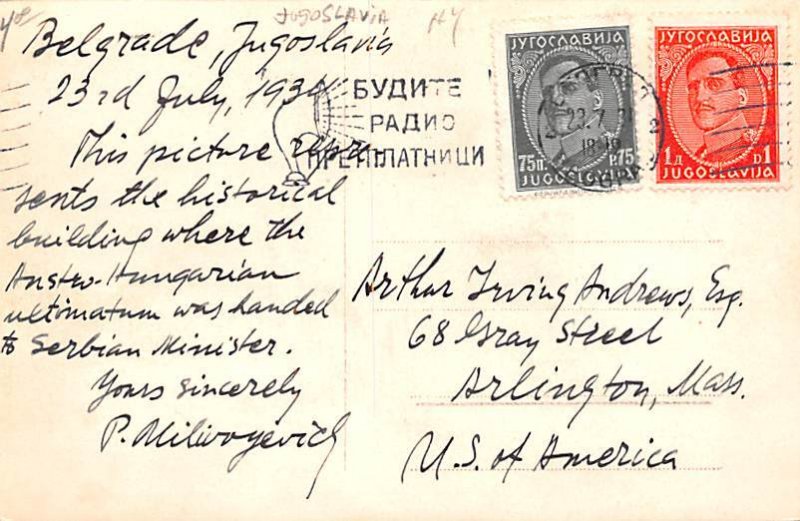 JUGOSLAVIA
Belgrade, Jugoslavia
23rd July, 193
This picture repre-
sents the historical
building where the
Austro-Hungarian
ultimatum was handed
to Serbian Minister.
Yours sincerely
P. Milivoyevich
БУДИТЕ
РАДИО
ПРЕТПЛАТНИЦИ
ЈУГОСЛАВИЈА
75п. P.75
JUGOSLAVIJA
ЈУГОСЛАВИЈА
1д D1
JUGOSLAVIJA
23.7.3
2
Arthur Irving Andrews, Esq.
68 Gray Street
Arlington, Mass.
U.S. of America